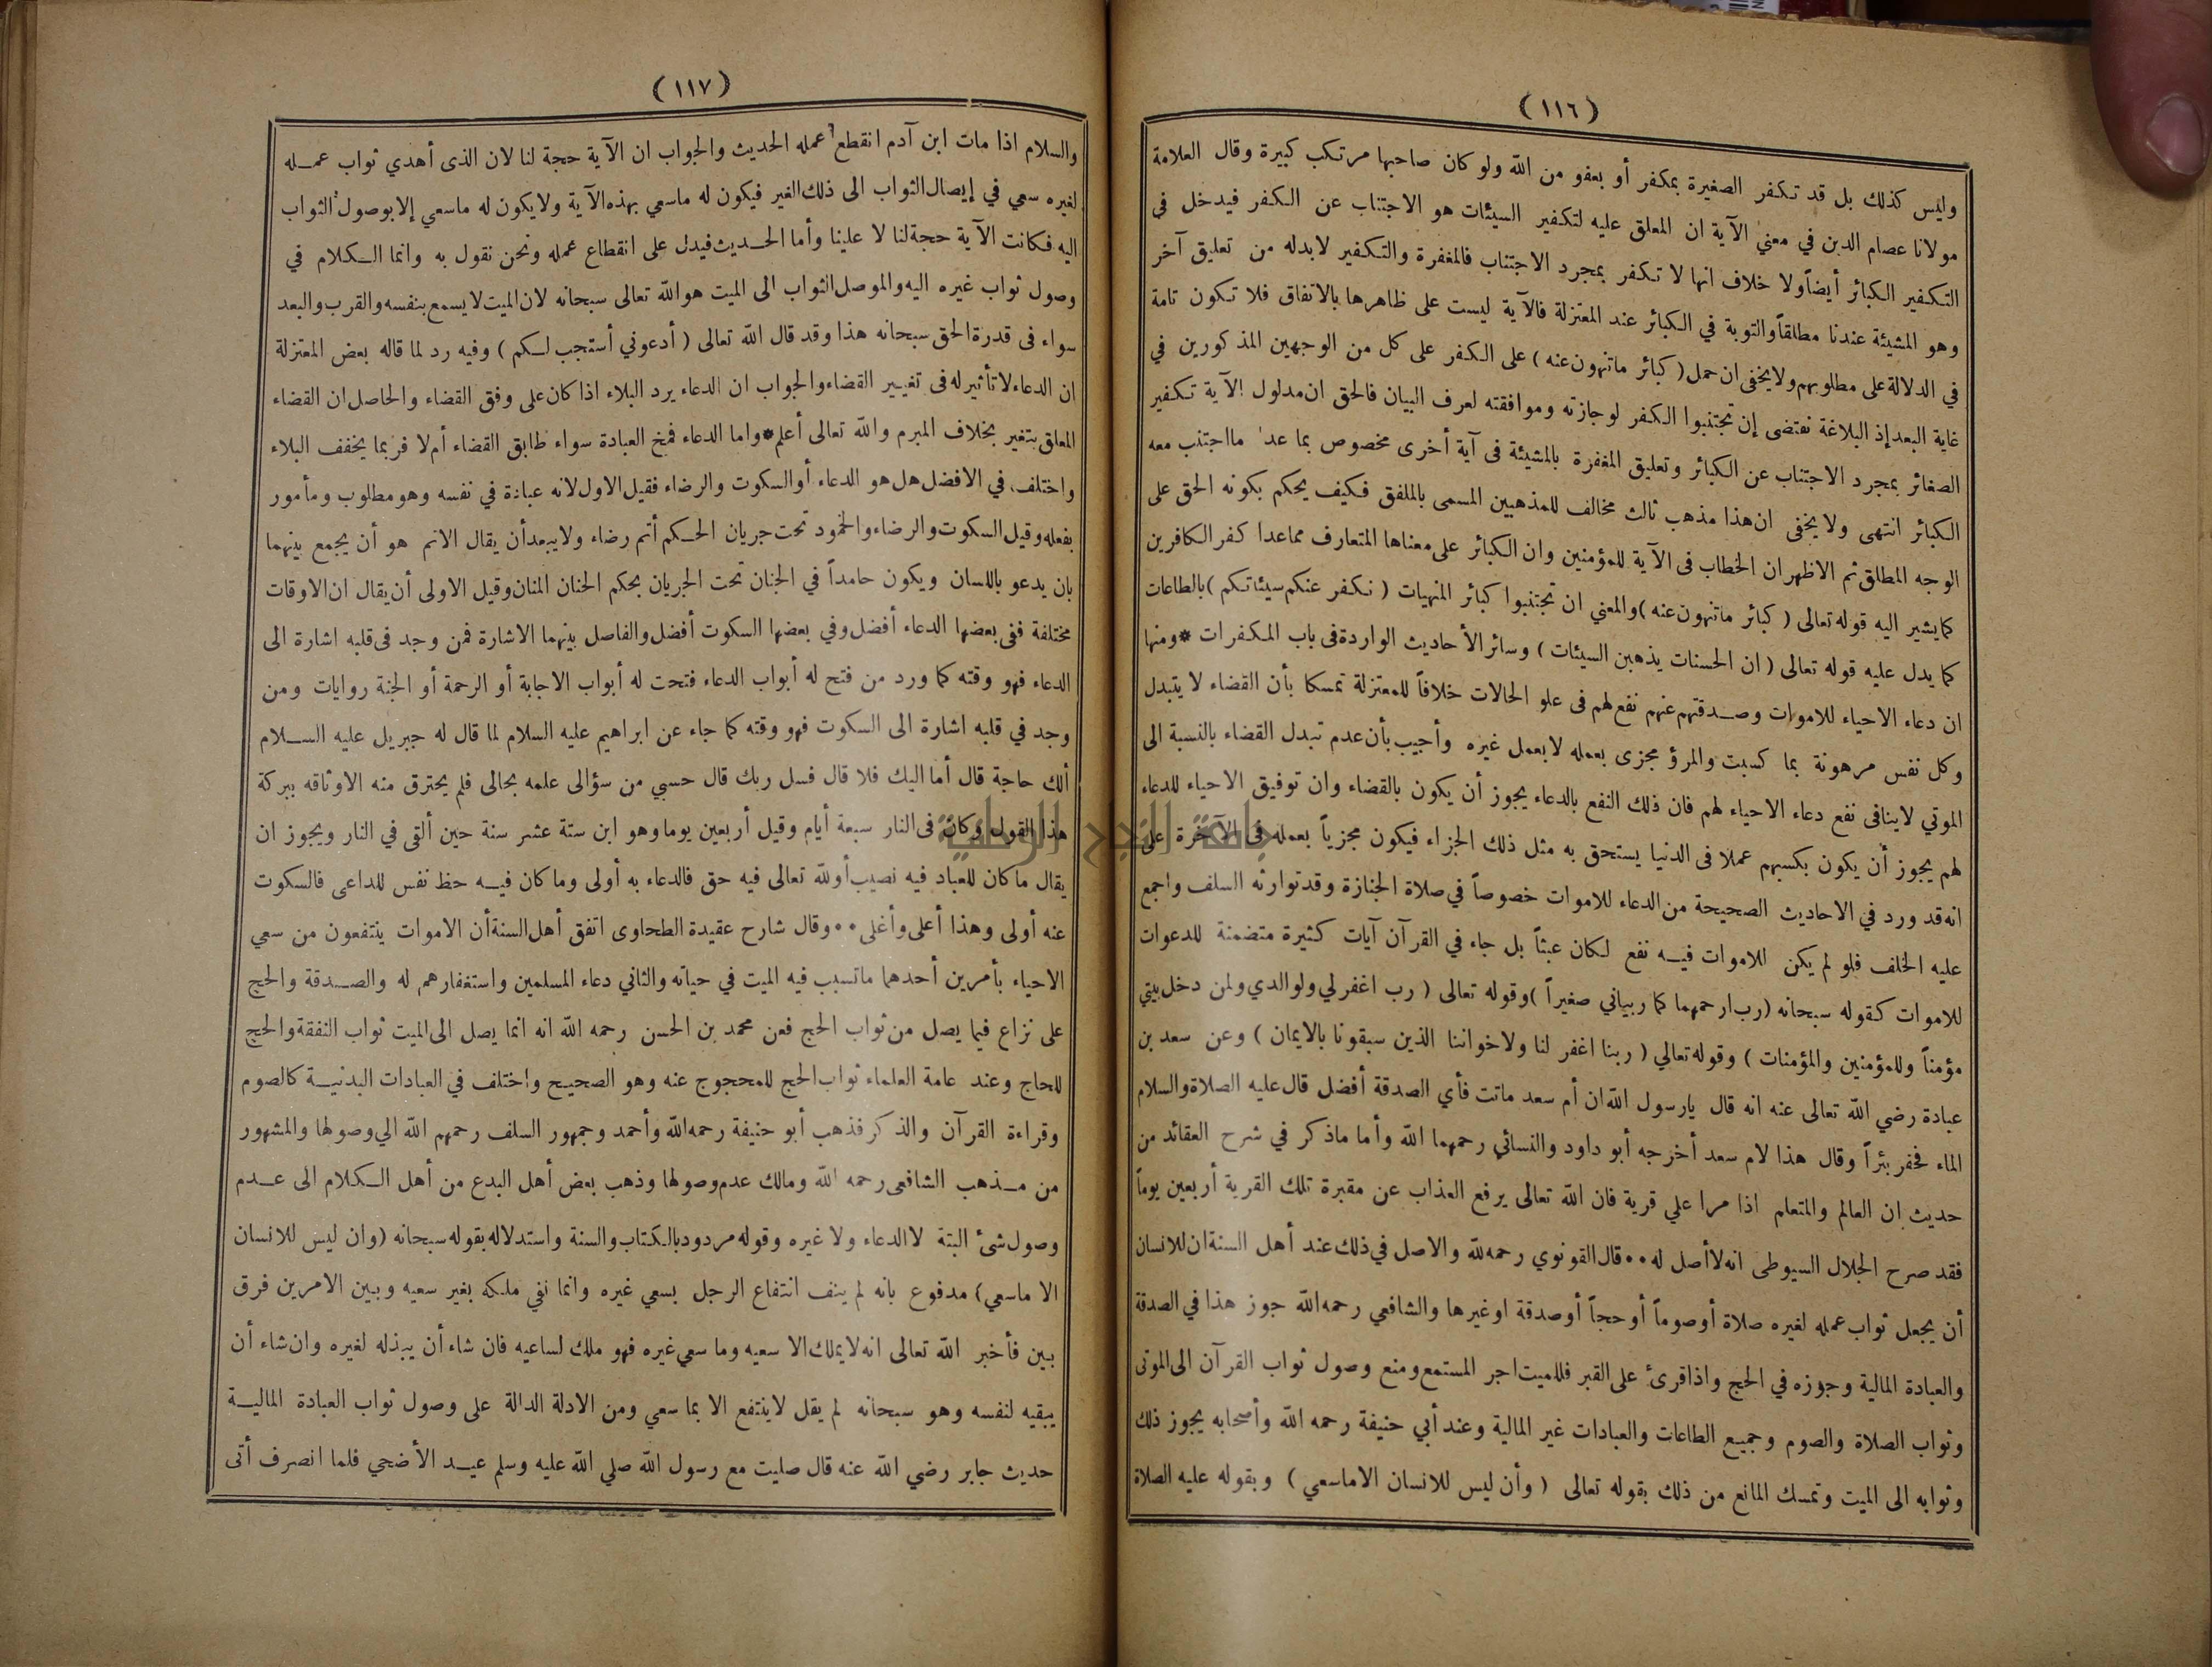 (١١٦)
وليس كذلك بل قد تكفر الصغيرة بمكفر أو بعفو من الله ولو كان صاحبها مرتكب كبيرة وقال العلامة
مولانا عصام الدين في معني الآية ان المعلق عليه لتكفير السيئات هو الاجتناب عن الكفر فيدخل في
التكفير الكبائر أيضاً ولا خلاف انها لا تكفر بمجرد الاجتناب فالمغفرة والتكفير لابد له من تعليق آخر
وهو المشيئة عندنا مطلقاً والتوبة في الكبائر عند المعتزلة فالآية ليست على ظاهرها بالاتفاق فلا تكون تامة
في الدلالة على مطلوبهم ولا يخفى ان حمل (كبائر ماتنهون عنه) على الكفر على كل من الوجهين المذكورين في
غاية البعد إذ البلاغة تقتضى إن تجتنبوا الكفر لوجازته وموافقته لعرف البيان فالحق ان مدلول الآية تكفير
الصغائر بمجرد الاجتناب عن الكبائر وتعليق المغفرة بالمشيئة فى آية أخرى مخصوص بما عدا مااجتنب معه
الكبائر انتهى ولا يخفى ان هذا مذهب ثالث مخالف للمذهبين المسمى بالملفق فكيف يحكم بكونه الحق على
الوجه المطلق ثم الاظهر ان الخطاب فى الآية للمؤمنين وان الكبائر على معناها المتعارف مماعدا كفر الكافرين
كما يشير اليه قوله تعالى (كبائر ماتنهون عنه) والمعني ان تجتنبوا كبائر المنهيات (نكفر عنكم سيئاتكم) بالطاعات
كما يدل عليه قوله تعالى (ان الحسنات يذهبن السيئات) وسائر الأحاديث الواردة فى باب المكفرات * ومنها
ان دعاء الاحياء للاموات وصدقتهم عنهم نفع لهم فى علو الحالات خلافاً للمعتزلة تمسكا بأن القضاء لا يتبدل
وكل نفس مرهونة بما كسبت والمرؤ مجزى بعمله لا بعمل غيره وأجيب بأن عدم تبدل القضاء بالنسبة الى
الموتي لاينافى نفع دعاء الاحياء لهم فان ذلك النفع بالدعاء يجوز أن يكون بالقضاء وان توفيق الاحياء للدعاء
لهم يجوز أن يكون بكسبهم عملا فى الدنيا يستحق به مثل ذلك الجزاء فيكون مجزياً بعمله فى الآخرة على
انه قد ورد في الاحاديث الصحيحة من الدعاء للاموات خصوصاً في صلاة الجنازة وقد توارثه السلف واجمع
عليه الخلف فلو لم يكن للاموات فيه نفع لكان عبثاً بل جاء في القرآن آيات كثيرة متضمنة للدعوات
للاموات كقوله سبحانه (رب ارحمهما كما ربياني صغيراً) وقوله تعالى (رب اغفر لي ولوالدي ولمن دخل بيتي
مؤمناً وللمؤمنين والمؤمنات) وقوله تعالي (ربنا اغفر لنا ولاخواننا الذين سبقونا بالايمان) وعن سعد بن
عبادة رضي الله تعالى عنه انه قال يارسول الله ان أم سعد ماتت فأي الصدقة أفضل قال عليه الصلاة والسلام
الماء فحفر بئراً وقال هذا لام سعد أخرجه أبو داود والنسائي رحمهما الله وأما ماذكر في شرح العقائد من
حديث ان العالم والمتعلم اذا مرا علي قرية فان الله تعالى يرفع العذاب عن مقبرة تلك القرية أربعين يوماً
فقد صرح الجلال السيوطى انه لا أصل له ٠٠ قال القونوي رحمه لله والاصل في ذلك عند أهل السنة ان للانسان
أن يجعل ثواب عمله لغيره صلاة أوصوماً أوحجاً أوصدقة اوغيرها والشافعي رحمه الله جوز هذا في الصدقة
والعبادة المالية وجوزه في الحج واذا قرئ على القبر فللميت اجر المستمع ومنع وصول ثواب القرآن الى الموتى
وثواب الصلاة والصوم وجميع الطاعات والعبادات غير المالية وعند أبي حنيفة رحمه الله وأصحابه يجوز ذلك
وثوابه الى الميت وتمسك المانع من ذلك بقوله تعالى (وأن ليس للانسان الاماسعي) وبقوله عليه الصلاة
(١١٧)
والسلام اذا مات ابن آدم انقطع عمله الحديث والجواب ان الآية حجة لنا لان الذى أهدي ثواب عمله
لغيره سعي في إيصال الثواب الى ذلك الغير فيكون له ماسعي بهذه الآية ولايكون له ماسعي إلا بوصول الثواب
اليه فكانت الآية حجة لنا لا علينا وأما الحديث فيدل على انقطاع عمله ونحن نقول به وانما الكلام في
وصول ثواب غيره اليه والموصل الثواب الى الميت هو الله تعالى سبحانه لان الميت لا يسمع بنفسه والقرب والبعد
سواء فى قدرة الحق سبحانه هذا وقد قال الله تعالى (أدعوني أستجب لكم) وفيه رد لما قاله بعض المعتزلة
ان الدعاء لا تأثير له فى تغيير القضاء والجواب ان الدعاء يرد البلاء اذا كان على وفق القضاء والحاصل ان القضاء
المعلق يتغير بخلاف المبرم والله تعالى أعلم * واما الدعاء فمخ العبادة سواء طابق القضاء أم لا فربما يخفف البلاء
واختلف في الافضل هل هو الدعاء أو السكوت والرضاء فقيل الاول لانه عبادة في نفسه وهو مطلوب ومأمور
بفعله وقيل السكوت والرضاء والخمود تحت جريان الحكم أتم رضاء ولا يبعد أن يقال الاتم هو أن يجمع بينهما
بان يدعو باللسان ويكون حامداً في الجنان تحت الجريان بحكم الحنان المنان وقيل الاولى أن يقال ان الاوقات
مختلفة ففى بعضها الدعاء أفضل وفي بعضها السكوت أفضل والفاصل بينهما الاشارة فمن وجد فى قلبه اشارة الى
الدعاء فهو وقته كما ورد من فتح له أبواب الدعاء فتحت له أبواب الاجابة أو الرحمة أو الجنة روايات ومن
وجد في قلبه اشارة الى السكوت فهو وقته كما جاء عن ابراهيم عليه السلام لما قال له جبريل عليه السلام
ألك حاجة قال أما اليك فلا قال فسل ربك قال حسبي من سؤالى علمه بحالى فلم يحترق منه الاوثاقه ببركة
هذا القول وكان فى النار سبعة أيام وقيل أربعين يوما وهو ابن ستة عشر سنة حين ألقى في النار ويجوز ان
يقال ما كان للعباد فيه نصيب أو لله تعالى فيه حق فالدعاء به أولى وما كان فيه حظ نفس للداعى فالسكوت
عنه أولى وهذا أعلى وأغلى ٠٠ وقال شارح عقيدة الطحاوى اتفق أهل السنة أن الاموات ينتفعون من سعي
الاحياء بأمرين أحدهما ماتسبب فيه الميت في حياته والثاني دعاء المسلمين واستغفارهم له والصدقة والحج
على نزاع فيما يصل من ثواب الحج فعن محمد بن الحسن رحمه الله انه انما يصل الى الميت ثواب النفقة والحج
للحاج وعند عامة العلماء ثواب الحج للمحجوج عنه وهو الصحيح واختلف في العبادات البدنية كالصوم
وقراءة القرآن والذكر فذهب أبو حنيفة رحمه الله وأحمد وجمهور السلف رحمهم الله الي وصولها والمشهور
من مذهب الشافعى رحمه الله ومالك عدم وصولها وذهب بعض أهل البدع من أهل الكلام الى عدم
وصول شئ البتة لا الدعاء ولا غيره وقوله مردود بالكتاب والسنة واستدلاله بقوله سبحانه (وان ليس للانسان
الا ماسعي) مدفوع بانه لم ينف انتفاع الرجل بسعي غيره وانما نفي ملكه بغير سعيه وبين الامرين فرق
بين فأخبر الله تعالى انه لا يملك الا سعيه وما سعي غيره فهو ملك لساعيه فان شاء أن يبذله لغيره وان شاء أن
يبقيه لنفسه وهو سبحانه لم يقل لاينتفع الا بما سعي ومن الادلة الدالة على وصول ثواب العبادة المالية
حديث جابر رضي الله عنه قال صليت مع رسول الله صلي الله عليه وسلم عيد الأضحي فلما انصرف أتى
جامعة النجاح الوطنية